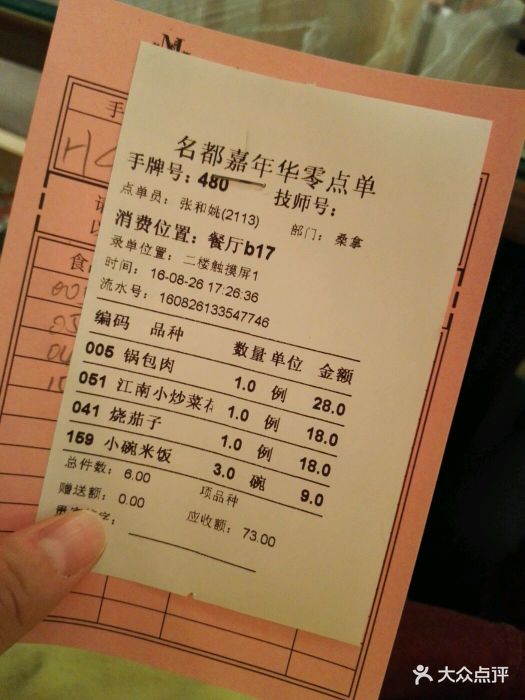 M
手
H
食
00
05
04
15
名都嘉年华零点单
手牌号：480 技师号：
点单员：张和姚(2113) 部门：桑拿
消费位置：餐厅b17
录单位置：二楼触摸屏1
时间：16-08-26 17:26:36
流水号：160826133547746
编码 品种 数量 单位 金额
005 锅包肉 1.0 例 28.0
051 江南小炒菜花 1.0 例 18.0
041 烧茄子 1.0 例 18.0
159 小碗米饭 3.0 碗 9.0
总件数：6.00 项品种
赠送额：0.00 应收额：73.00
大众点评